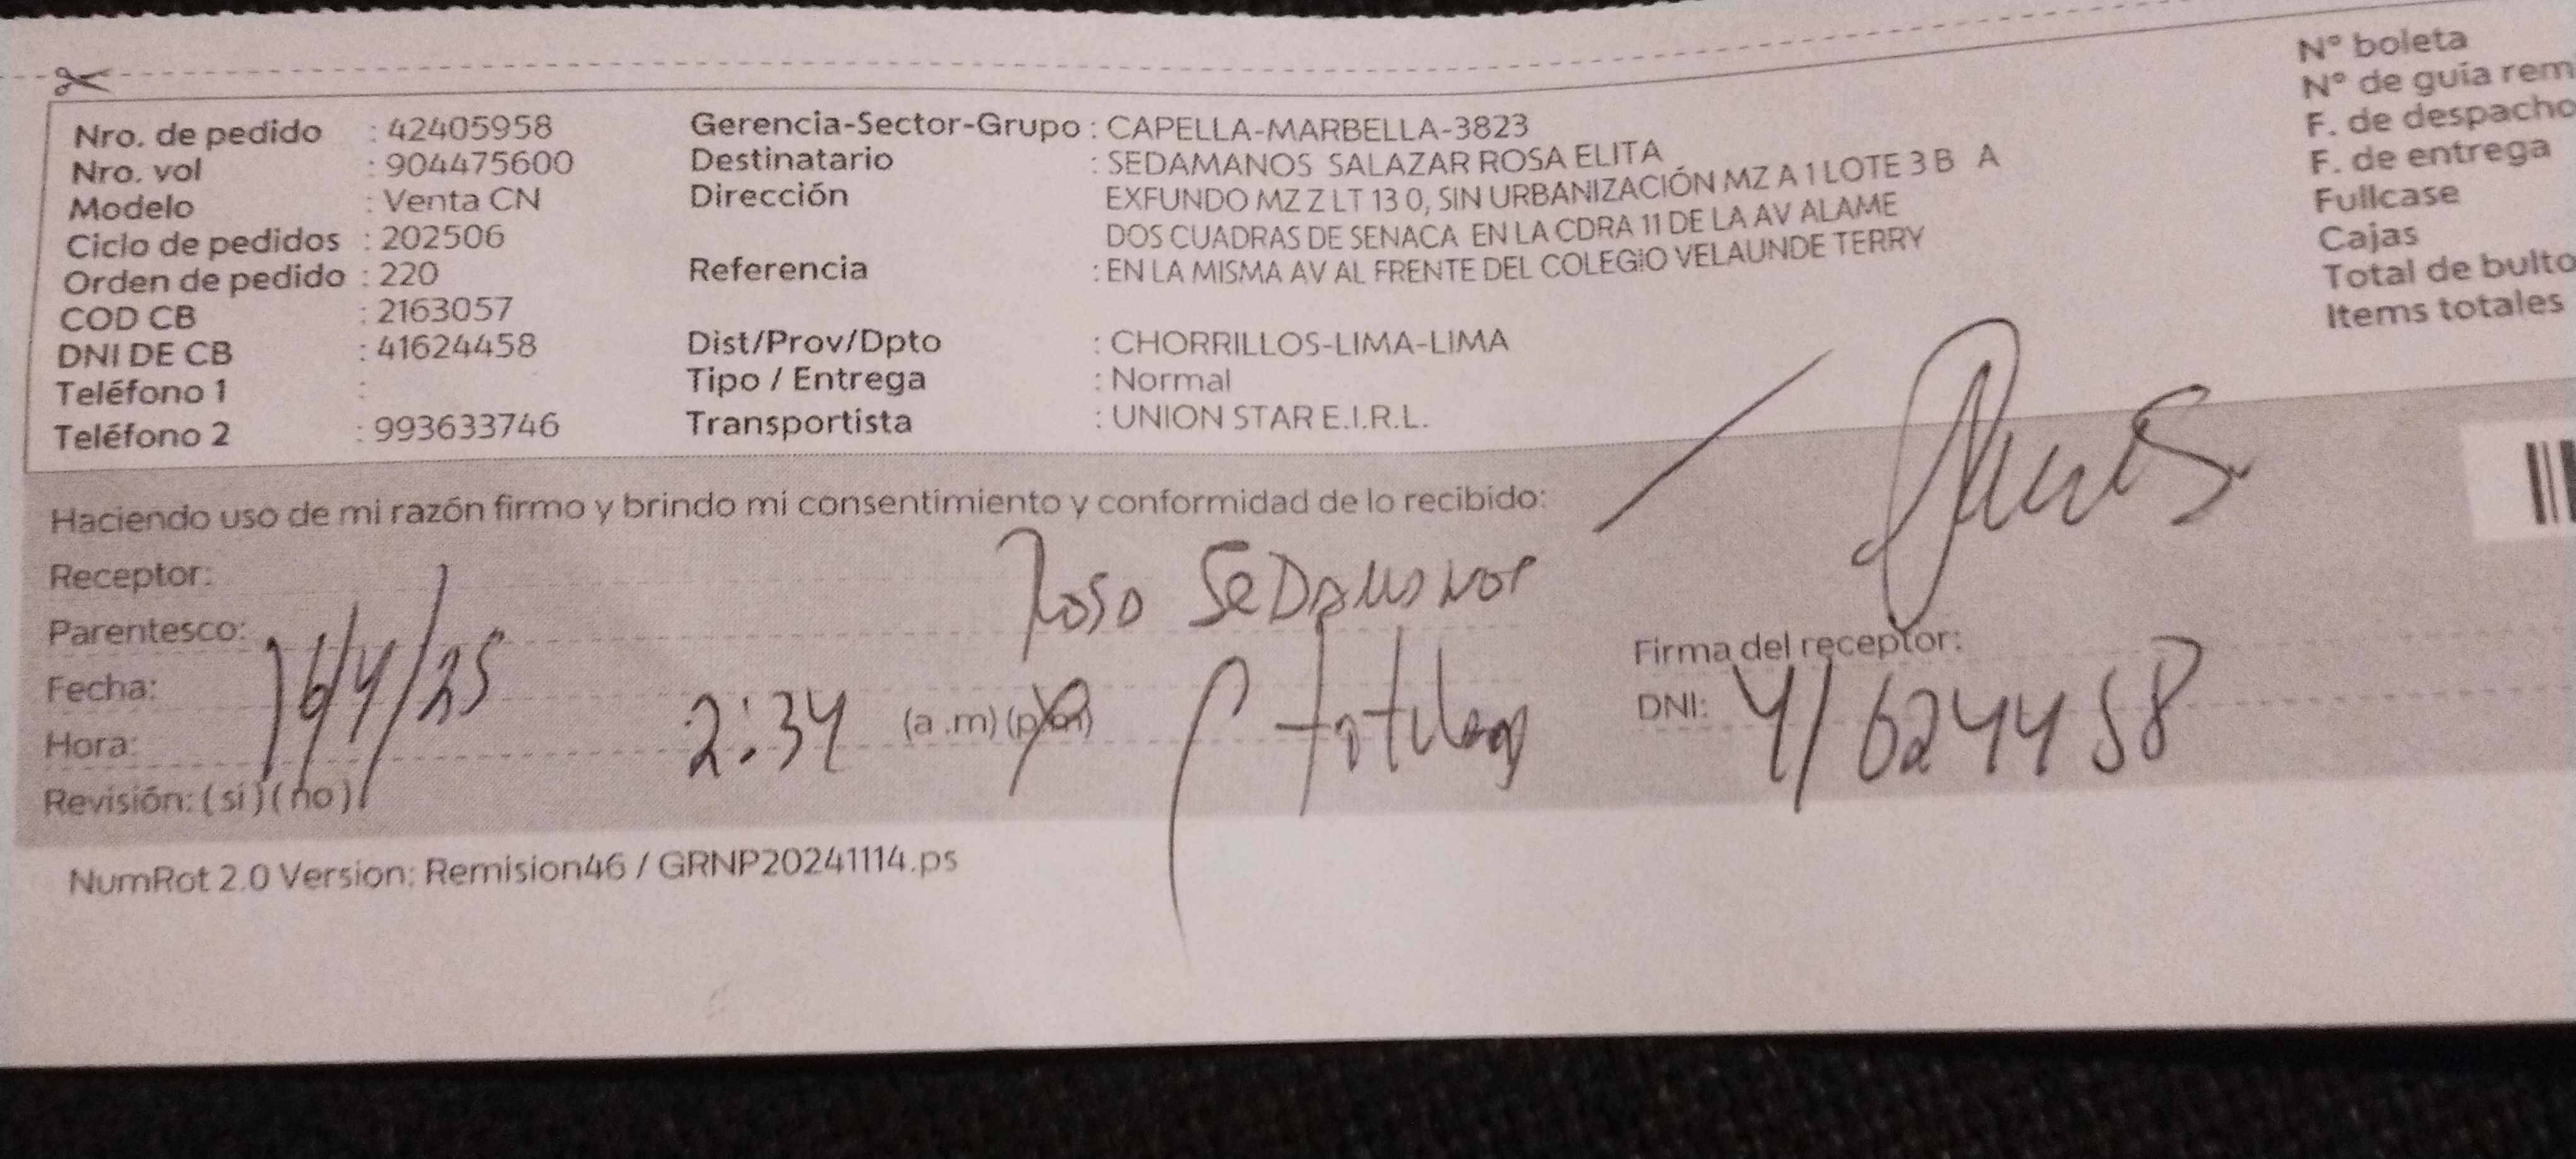 Nro. de pedido : 42405958
Nro. vol : 904475600
Modelo : Venta CN
Ciclo de pedidos : 202506
Orden de pedido : 220
COD CB : 2163057
DNI DE CB : 41624458
Teléfono 1 :
Teléfono 2 : 993633746
Gerencia-Sector-Grupo : CAPELLA-MARBELLA-3823
Destinatario : SEDAMANOS SALAZAR ROSA ELITA
Dirección EXFUNDO MZ Z LT 13 0, SIN URBANIZACIÓN MZ A 1 LOTE 3 B A
DOS CUADRAS DE SENACA EN LA CDRA 11 DE LA AV ALAME
Referencia : EN LA MISMA AV AL FRENTE DEL COLEGIO VELAUNDE TERRY
Dist/Prov/Dpto : CHORRILLOS-LIMA-LIMA
Tipo / Entrega : Normal
Transportista : UNION STAR E.I.R.L.
N° boleta
N° de guía rem
F. de despacho
F. de entrega
Fullcase
Cajas
Total de bulto
Items totales
Haciendo uso de mi razón firmo y brindo mi consentimiento y conformidad de lo recibido:
Receptor:
Parentesco:
Fecha: 16/4/25
Hora: 2:34 (a .m) (p.m)
Revisión: ( si ) ( no )
Firma del receptor:
DNI: 41624458
NumRot 2.0 Version: Remision46 / GRNP20241114.ps